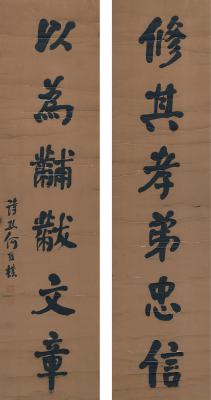 修其孝弟忠信
以為黼黻文章
詩孫何維樸